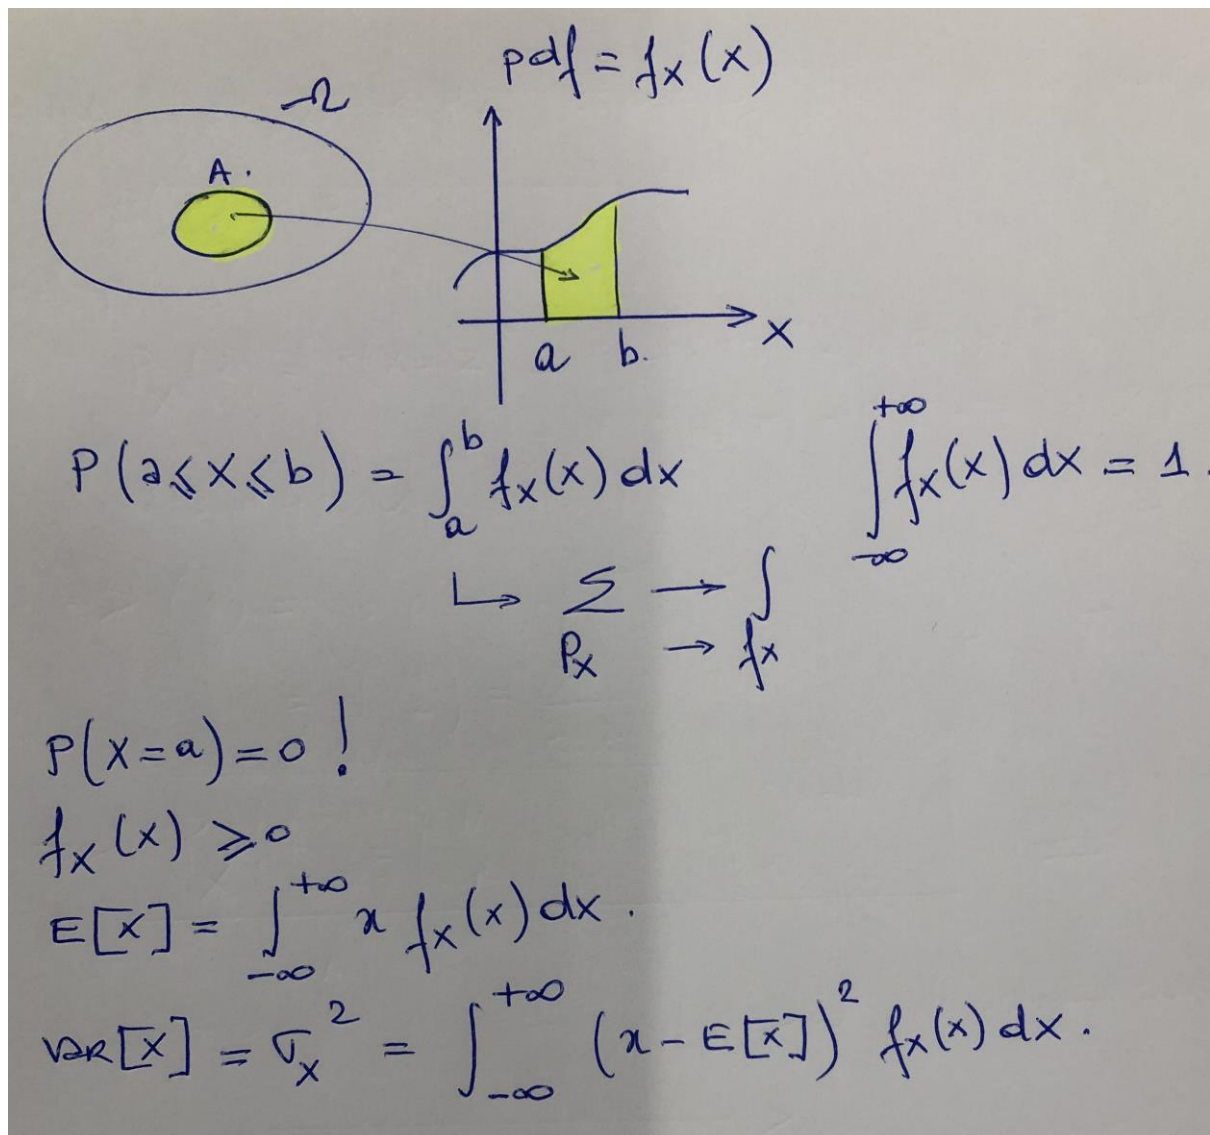 pdf = fₓ(x)
Ω
A.
a b. x
P(a⩽X⩽b) = ∫ₐᵇ fₓ(x) dx
∫₋∞⁺∞ fₓ(x) dx = 1.
↳ Σ → ∫
Pₓ → fₓ
P(X=a)=0 !
fₓ(x) ⩾0
E[X] = ∫₋∞⁺∞ x fₓ(x) dx.
VAR[X] = σₓ² = ∫₋∞⁺∞ (x - E[X])² fₓ(x) dx.